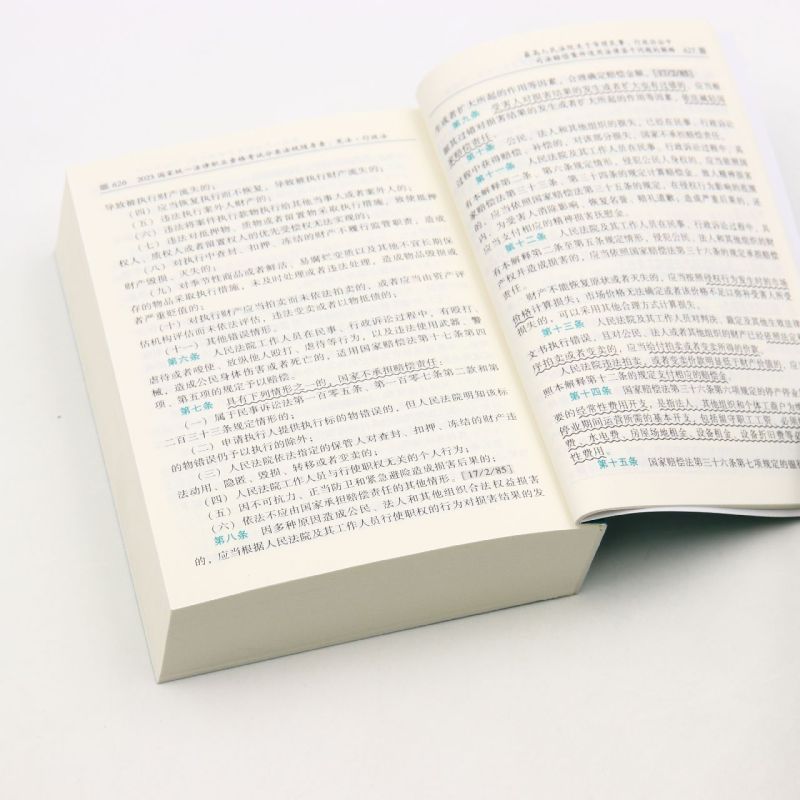 626 2023国家统一法律职业资格考试分类法规随身查：宪法·行政法
导致被执行财产流失的；
（四）应当恢复执行而不恢复，导致被执行财产流失的；
（五）违法执行案外人财产的；
（六）违法将案件执行款物执行给其他当事人或者案外人的；
（七）违法对抵押物、质物或者留置物采取执行措施，致使抵押
权人、质权人或者留置权人的优先受偿权无法实现的；
（八）对执行中查封、扣押、冻结的财产不履行监管职责，造成
财产毁损、灭失的；
（九）对季节性商品或者鲜活、易腐烂变质以及其他不宜长期保
存的物品采取执行措施，未及时处理或者违法处理，造成物品毁损或
者严重贬值的；
（十）对执行财产应当拍卖而未依法拍卖的，或者应当由资产评
估机构评估而未依法评估，违法变卖或者以物抵债的；
（十一）其他错误情形。
第六条 人民法院工作人员在民事、行政诉讼过程中，有殴打、
虐待或者唆使、放纵他人殴打、虐待等行为，以及违法使用武器、警
械，造成公民身体伤害或者死亡的，适用国家赔偿法第十七条第四
项、第五项的规定予以赔偿。
第七条 具有下列情形之一的，国家不承担赔偿责任：
（一）属于民事诉讼法第一百零五条、第一百零七条第二款和第
二百三十三条规定情形的；
（二）申请执行人提供执行标的物错误的，但人民法院明知该标
的物错误仍予以执行的除外；
（三）人民法院依法指定的保管人对查封、扣押、冻结的财产违
法动用、隐匿、毁损、转移或者变卖的；
（四）人民法院工作人员与行使职权无关的个人行为；
（五）因不可抗力、正当防卫和紧急避险造成损害后果的；
（六）依法不应由国家承担赔偿责任的其他情形。[17/2/85]
第八条 因多种原因造成公民、法人和其他组织合法权益损害
的，应当根据人民法院及其工作人员行使职权的行为对损害结果的发
最高人民法院关于审理民事、行政诉讼中
司法赔偿案件适用法律若干问题的解释 627
生或者扩大所起的作用等因素，合理确定赔偿金额。[17/2/85]
第九条 受害人对损害结果的发生或者扩大也有过错的，应当根
据其过错对损害结果的发生或者扩大所起的作用等因素，依法减轻国
家赔偿责任。
第十条 公民、法人和其他组织的损失，已经在民事、行政诉讼
过程中获得赔偿、补偿的，对该部分损失，国家不承担赔偿责任。
第十一条 人民法院及其工作人员在民事、行政诉讼过程中，具
有本解释第二条、第六条规定情形，侵犯公民人身权的，应当依照国
家赔偿法第三十三条、第三十四条的规定计算赔偿金。致人精神损害
的，应当依照国家赔偿法第三十五条的规定，在侵权行为影响的范围
内，为受害人消除影响、恢复名誉、赔礼道歉；造成严重后果的，还
应当支付相应的精神损害抚慰金。
第十二条 人民法院及其工作人员在民事、行政诉讼过程中，具
有本解释第二条至第五条规定情形，侵犯公民、法人和其他组织的财
产权并造成损害的，应当依照国家赔偿法第三十六条的规定承担赔偿
责任。
财产不能恢复原状或者灭失的，应当按照侵权行为发生时的市场
价格计算损失；市场价格无法确定或者该价格不足以弥补受害人所受
损失的，可以采用其他合理方式计算损失。
第十三条 人民法院及其工作人员对判决、裁定及其他生效法律
文书执行错误，且对公民、法人或者其他组织的财产已经依照法定程
序拍卖或者变卖的，应当给付拍卖或者变卖所得的价款。
人民法院违法拍卖，或者变卖价款明显低于财产价值的，应
照本解释第十二条的规定支付相应的赔偿金。
第十四条 国家赔偿法第三十六条第六项规定的停产停业
要的经常性费用开支，是指法人、其他组织和个体工商户为维
停业期间运营所需的基本开支，包括留守职工工资、必须
费、水电费、房屋场地租金、设备租金、设备折旧费等必
性费用。
第十五条 国家赔偿法第三十六条第七项规定的银